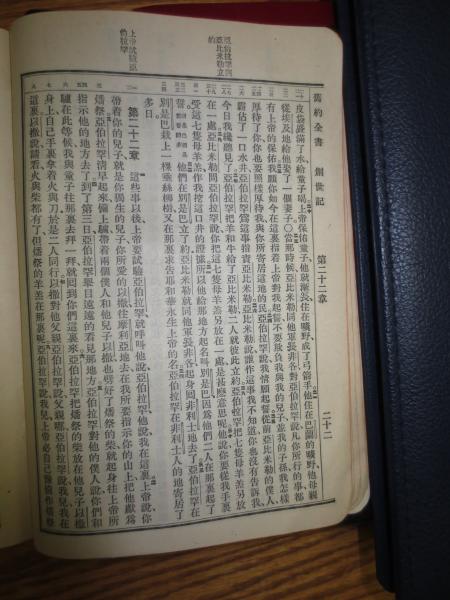 舊約全書 創世記 第二十二章 二十二
皮袋盛滿了水給童子喝上帝保佑童子他就漸長住在曠野成了弓箭手他住在巴蘭的曠野他母親
從埃及地給他娶了一個妻子〇當那時候亞比米勒同他軍長非各對亞伯拉罕說凡你所行的事都
有上帝的保佑我願你如今在這裏指着上帝對我起誓不要欺負我與我的子並我的子孫我怎樣
厚待了你你也要照樣厚待我與你所寄居這地的民亞伯拉罕說我情願起誓從前亞比米勒的僕人
霸佔了一口水井亞伯拉罕爲這事指責亞比米勒亞比米勒說誰作這事我不知道你也沒有告訴我
今日我纔聽見了亞伯拉罕把羊和牛給了亞比米勒二人就彼此立約亞伯拉罕把七隻母羊羔另放
在一處亞比米勒問亞伯拉罕說你把這七隻母羊羔另放在一處是甚麽意思呢他說你要從我手裏
受這七隻母羊羔作我挖這口井的證據所以他給那地方起名叫別是巴因爲他們二人在那裏起了
誓他們在別是巴立了約亞比米勒就同他軍長非各起身回非利士地去了亞伯拉罕在
別是巴栽上一棵垂絲柳樹又在那裏求告耶和華永生上帝的名亞伯拉罕在非利士人的地寄居了
多日
第二十二章 這些事以後上帝要試驗亞伯拉罕就呼叫他說亞伯拉罕他說我在這裏上帝說你
帶着你的兒子就是你獨生的兒子你所愛的以撒往摩利亞地去在我所要指示你的山上把他獻爲
燔祭亞伯拉罕清早起來備上驢帶着兩個僕人和他兒子以撒也劈好了燔祭的柴就起身往上帝所
指示他的地方去了到了第三日亞伯拉罕舉目遠遠的看見那地方亞伯拉罕對他的僕人說你們和
驢在此等候我與童子往那裏去拜一拜就回到你們這裏來亞伯拉罕把燔祭的柴放在他兒子以撒
身上自己手裏拿着火與刀於是二人同行以撒對他父親亞伯拉罕說父親哪亞伯拉罕說我兒我在
這裏以撒說請看火與柴都有了但燔祭的羊羔在那裏呢亞伯拉罕說我兒上帝必自己預備作燔祭
亞伯拉罕與亞比米勒立約
上帝試驗亞伯拉罕